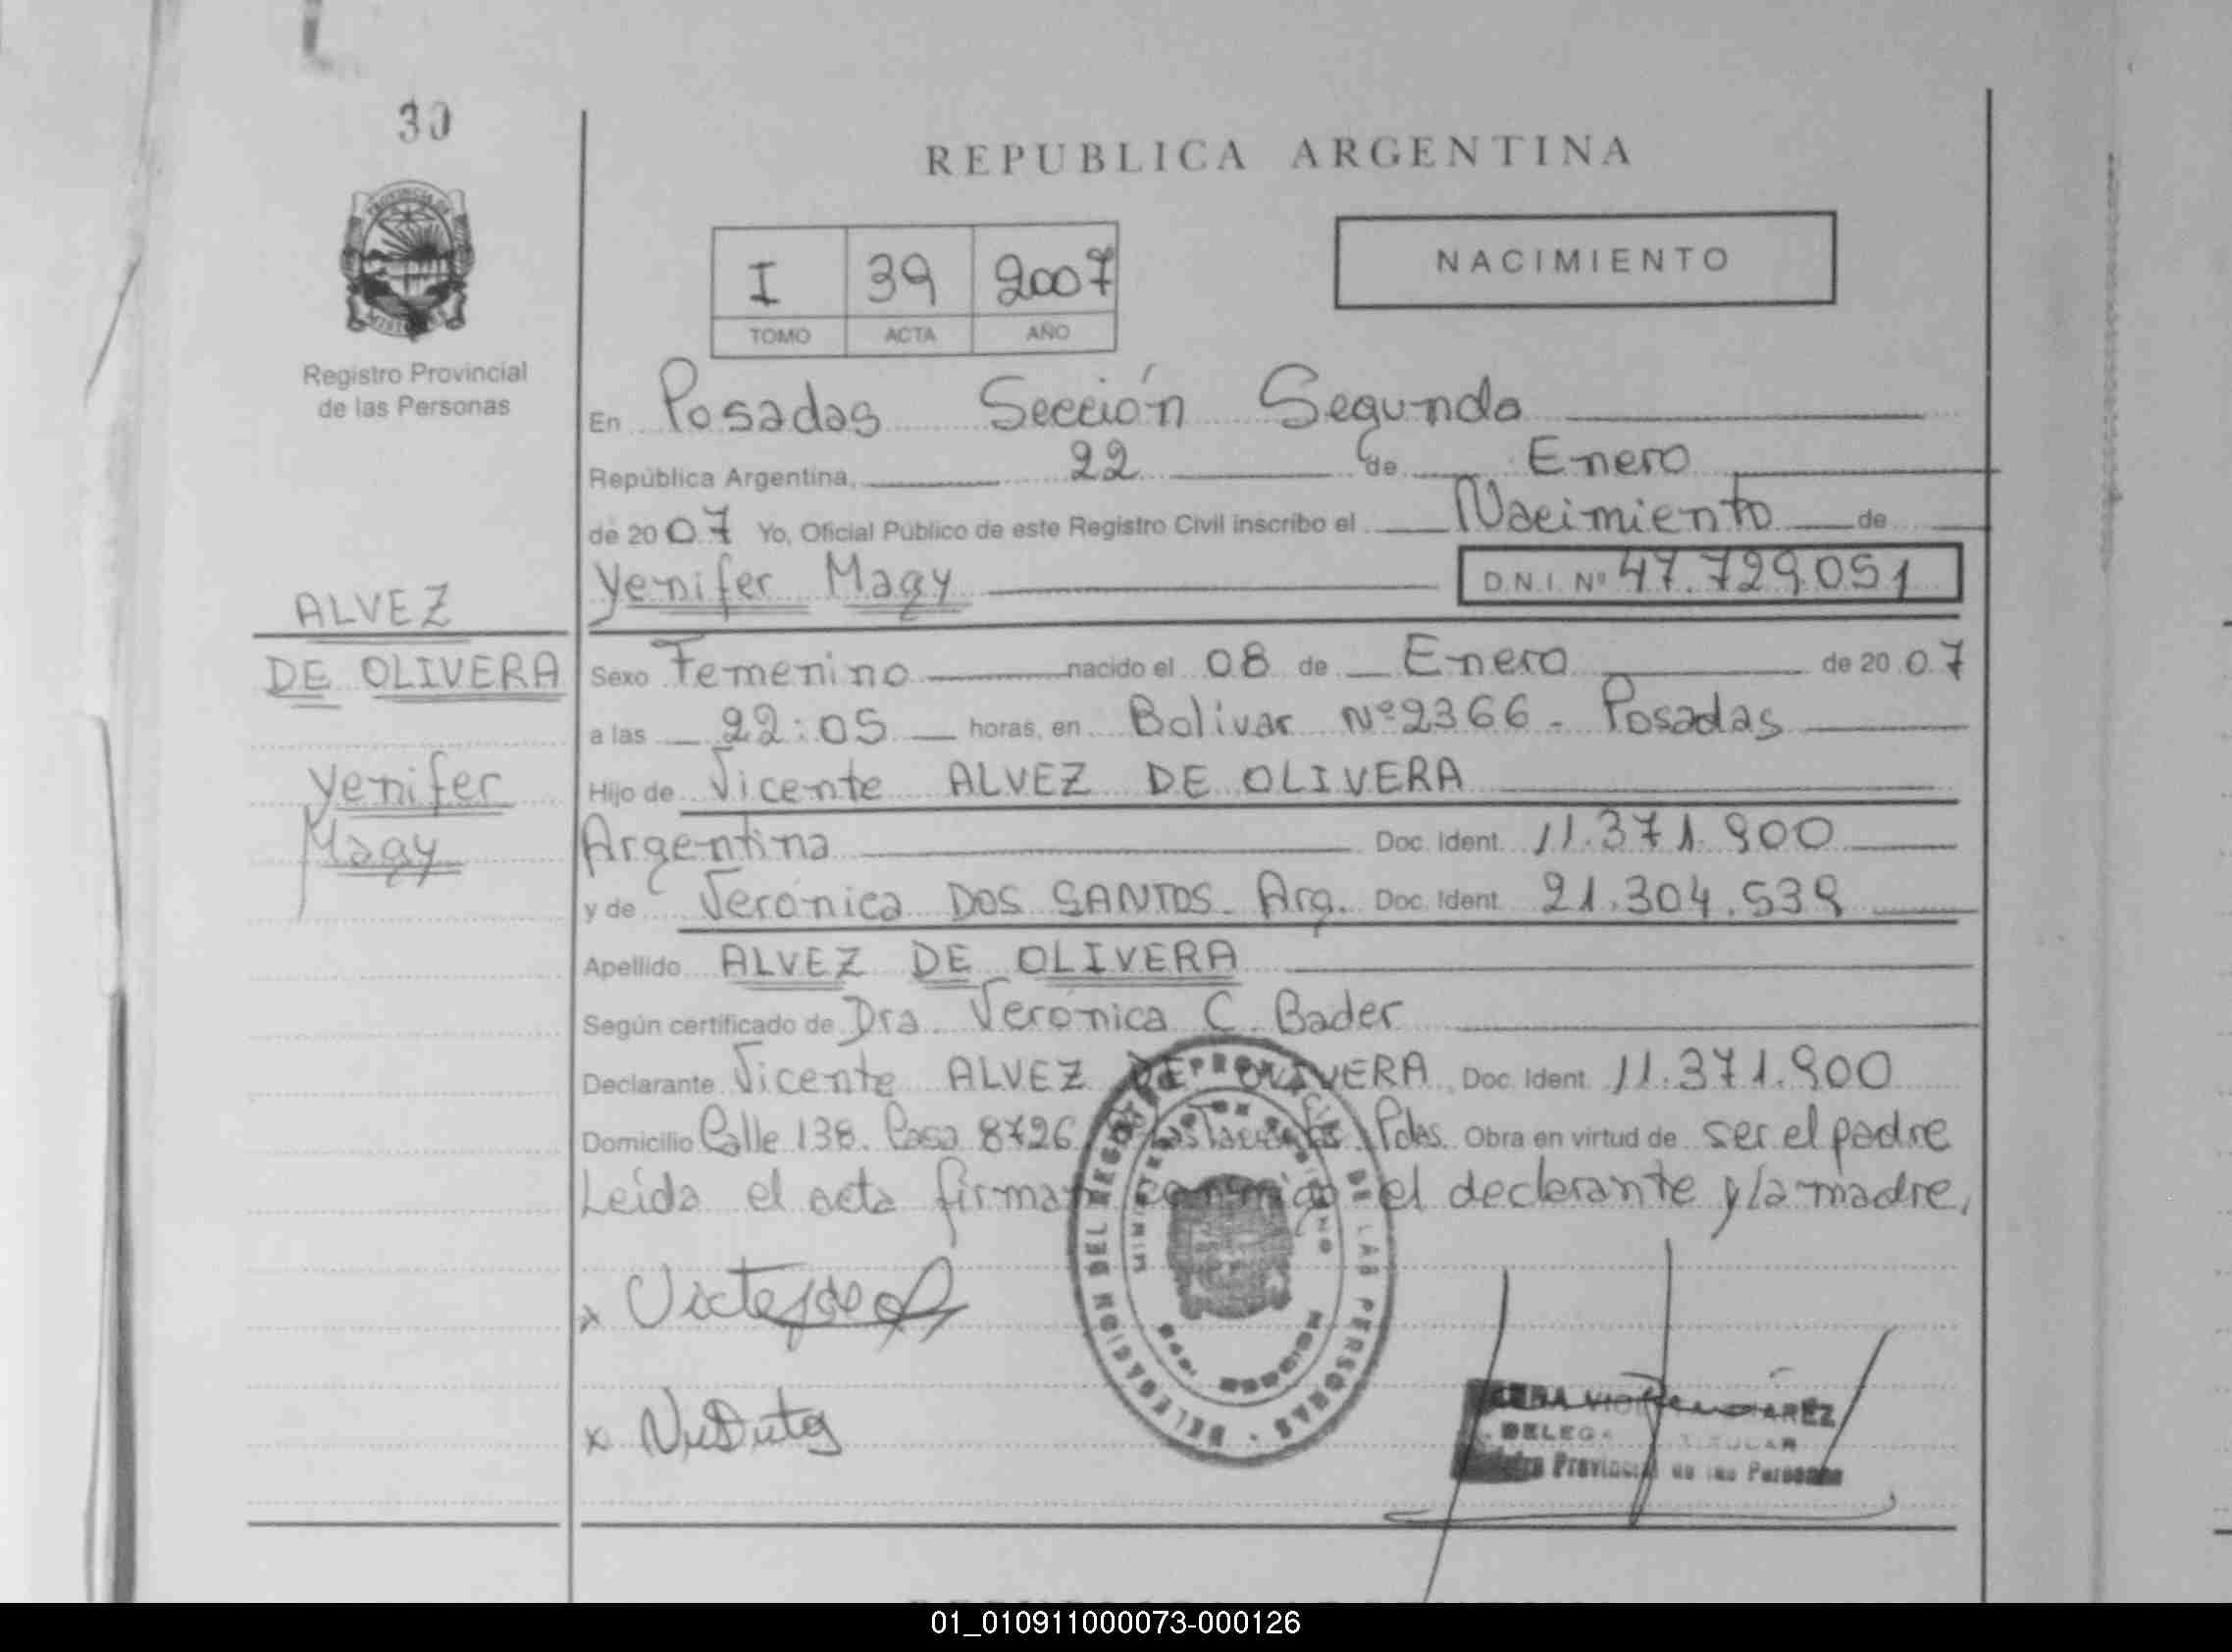 30
REPUBLICA ARGENTINA
PROVINCIA DE
MISIONES
Registro Provincial
de las Personas
I 39 2007
TOMO ACTA AÑO
NACIMIENTO
En Posadas Sección Segunda
República Argentina, 22 de Enero
de 2007 Yo, Oficial Público de este Registro Civil inscribo el Nacimiento de
Yenifer Magy D.N.I. Nº 47.729.051
ALVEZ
DE OLIVERA
Yenifer
Magy
Sexo Femenino nacido el 08 de Enero de 2007
a las 22:05 horas, en Bolivar Nº 2366 - Posadas
Hijo de Vicente ALVEZ DE OLIVERA
Argentina Doc. Ident. 11.371.900
y de Verónica DOS SANTOS - Arg. Doc. Ident. 21.304.539
Apellido ALVEZ DE OLIVERA
Según certificado de Dra. Verónica C. Bader
Declarante Vicente ALVEZ DE OLIVERA Doc. Ident. 11.371.900
Domicilio Calle 138. Casa 8726 Pdas. Obra en virtud de ser el padre
Leída el acta firman conmigo el declarante y la madre,
DELEGACION DEL REGISTRO PROVINCIAL DE LAS PERSONAS
MINISTERIO DE GOBIERNO
Registro Provincial de las Personas
01_010911000073-000126